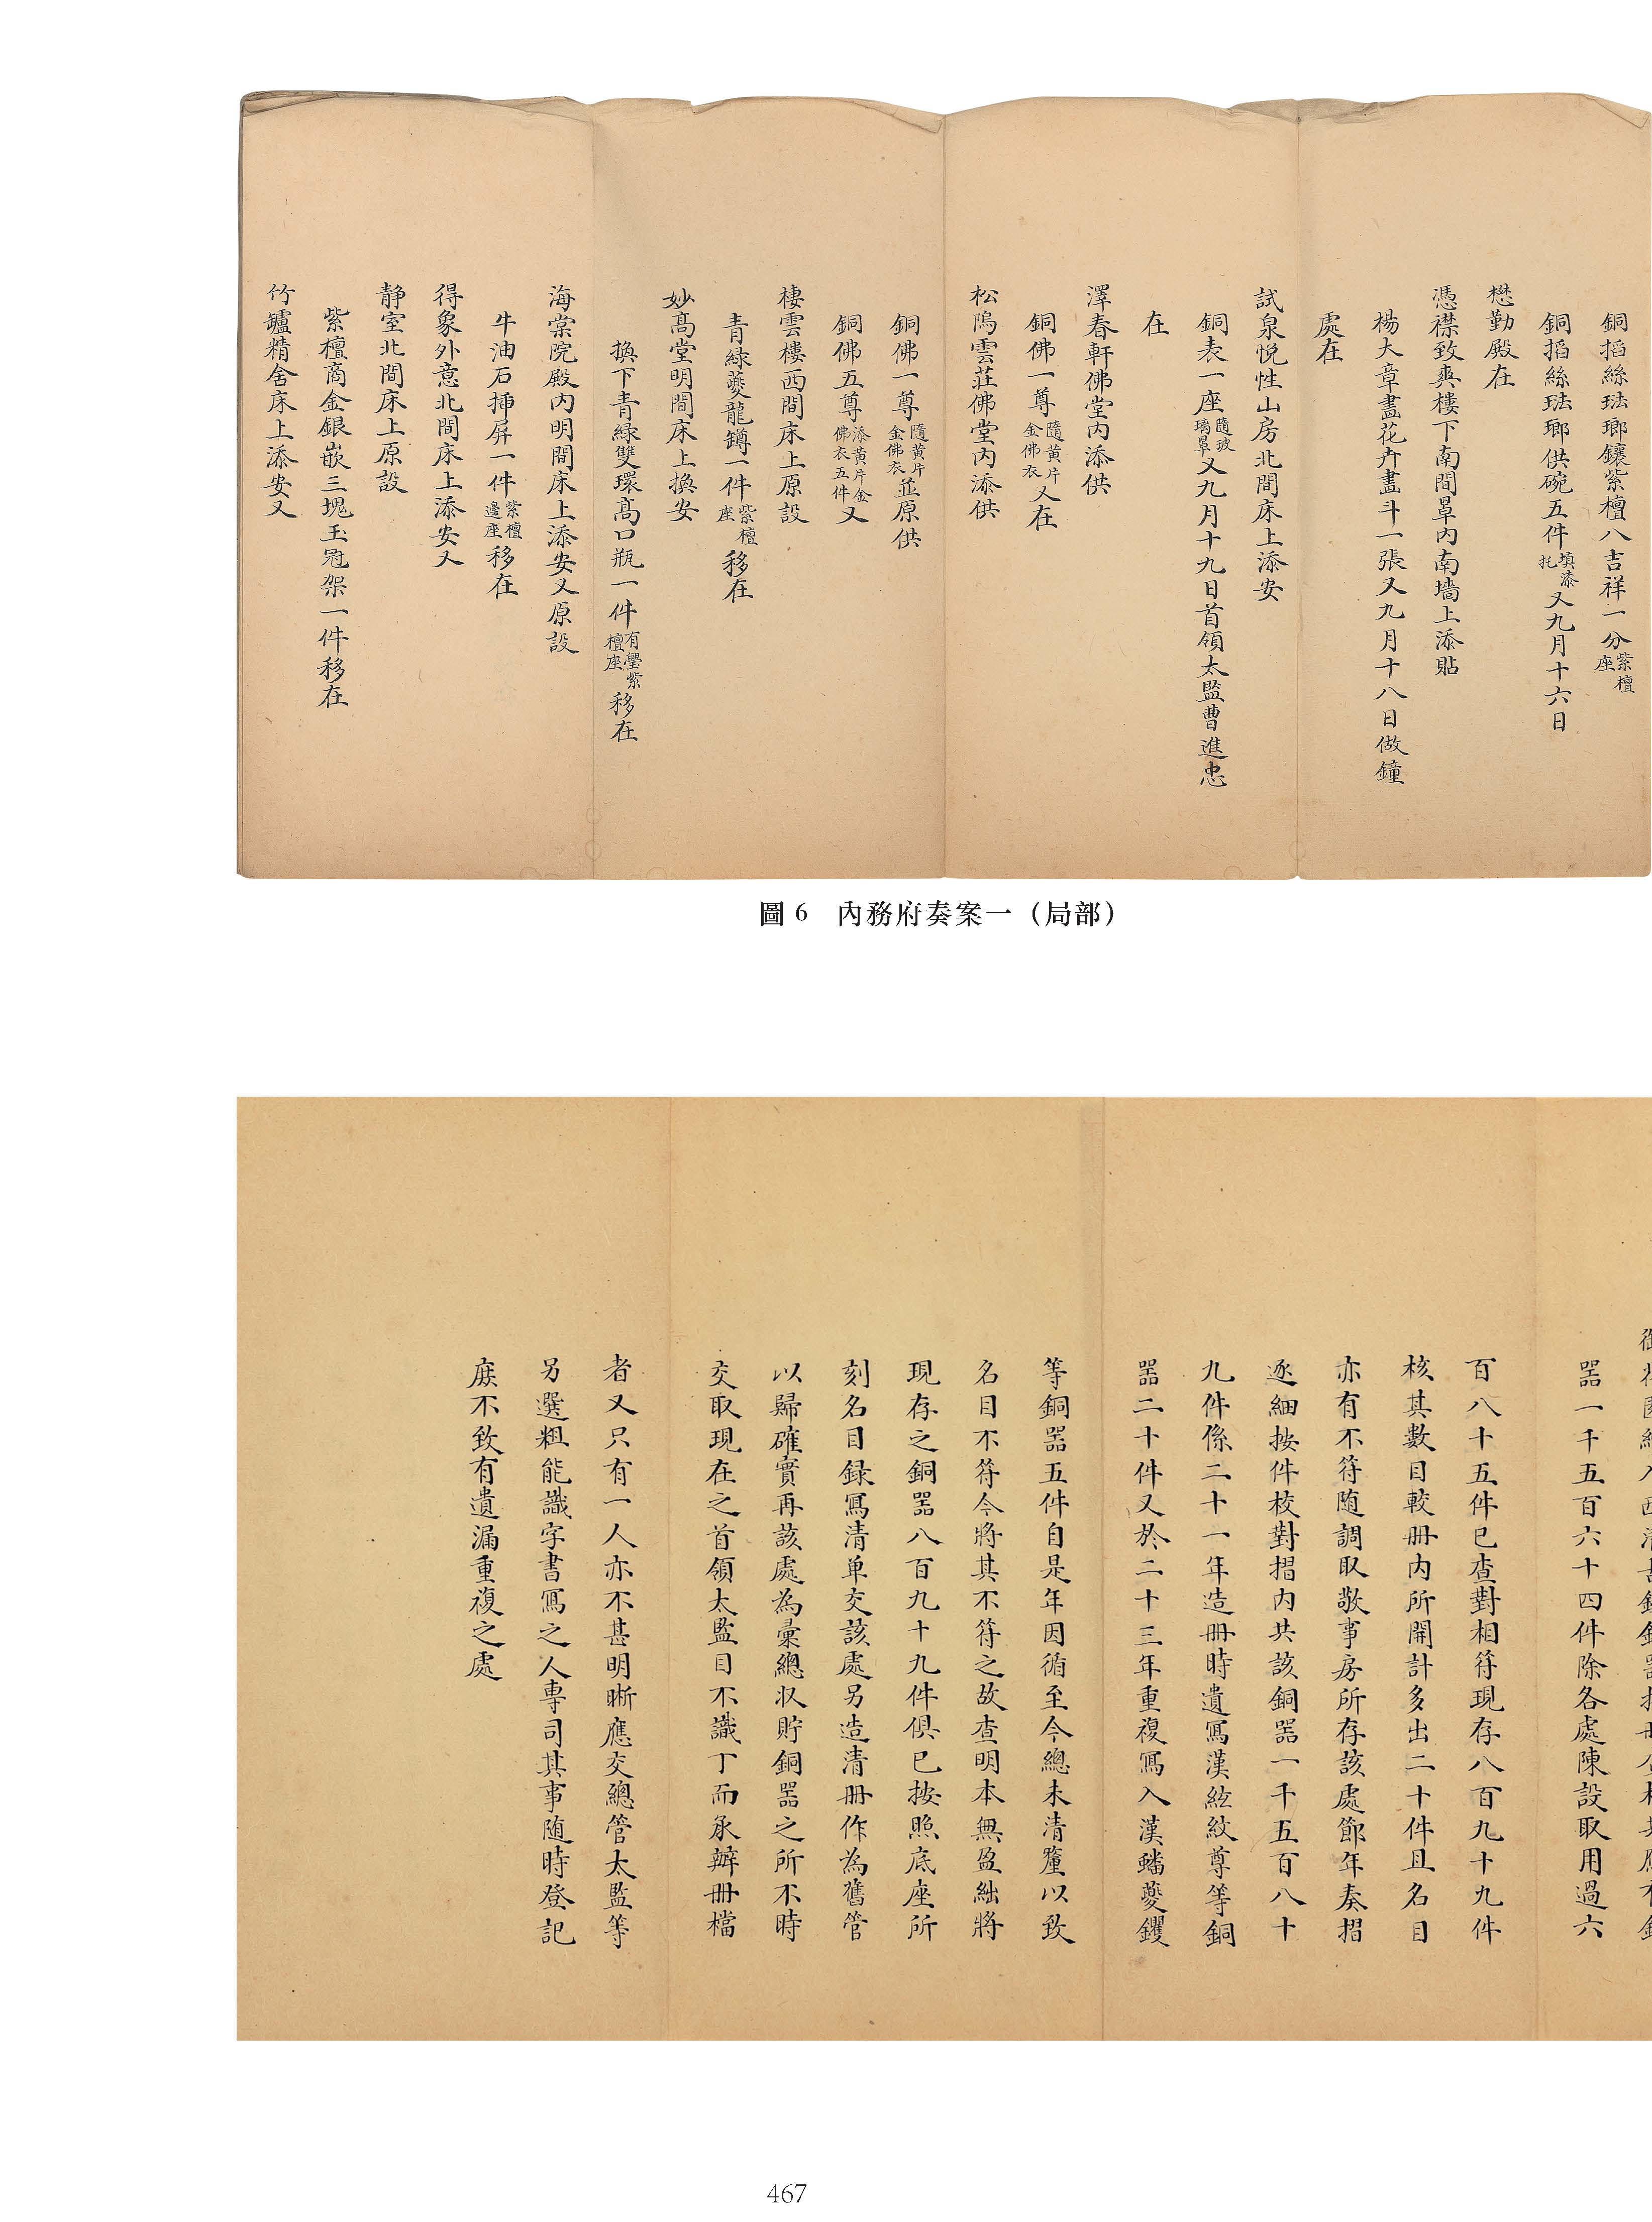 銅搯絲琺瑯鑲紫檀八吉祥一分紫檀座
銅搯絲琺瑯供碗五件填漆托又九月十六日
懋勤殿在
憑襟致爽樓下南間罩內南墻上添貼
楊大章畫花卉畫斗一張又九月十八日做鐘
處在
試泉悅性山房北間床上添安
銅表一座隨玻璃罩又九月十九日首領太監曹進忠
在
澤春軒佛堂內添供
銅佛一尊隨黃片金佛衣又在
松隖雲莊佛堂內添供
銅佛一尊隨黃片金佛衣並原供
銅佛五尊添黃片金佛衣五件又
棲雲樓西間床上原設
青綠夔龍罇一件紫檀座移在
妙高堂明間床上換安
換下青綠雙環高口瓶一件有璺紫檀座移在
海棠院殿內明間床上添安又原設
牛油石揷屏一件紫檀邊座移在
得象外意北間床上添安又
静室北間床上原設
紫檀商金銀嵌三塊玉冠架一件移在
竹罏精舍床上添安又
圖 6　內務府奏案一（局部）
器一千五百六十四件除各處陳設取用過六
百八十五件已查對相符現存八百九十九件
核其數目較冊內所開計多出二十件且名目
亦有不符隨調取敬事房所存該處節年奏摺
逐細按件校對摺內共該銅器一千五百八十
九件係二十一年造冊時遺寫漢絃紋尊等銅
器二十件又於二十三年重複寫入漢蟠夔鑊
等銅器五件自是年因循至今總未清釐以致
名目不符今將其不符之故查明本無盈絀將
現存之銅器八百九十九件俱已按照底座所
刻名目録寫清单交該處另造清冊作為舊管
以歸確實再該處為彙總収貯銅器之所不時
交取現在之首領太監目不識丁而承辦冊檔
者又只有一人亦不甚明晰應交總管太監等
另選粗能識字書寫之人專司其事隨時登記
庶不致有遺漏重複之處
467